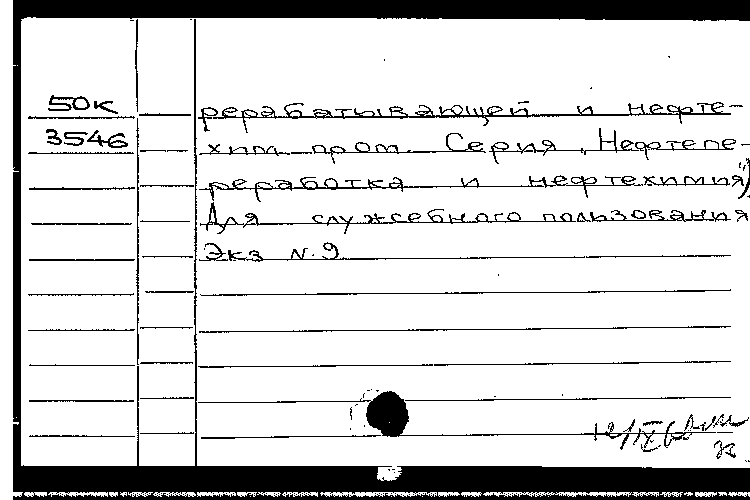 50К
3546
рерабатывающей и нефте-
хим. пром. Серия „Нефтепе-
реработка и нефтехимия")
Для служебного пользования
Экз N.9